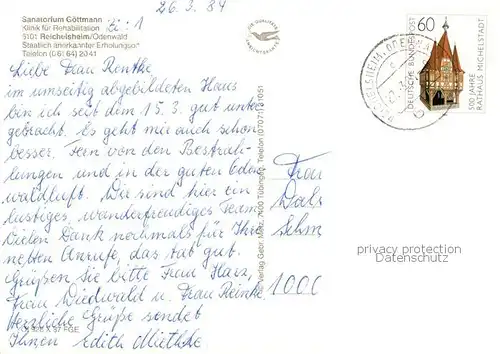 26.3.84
Sanatorium Göttmann
Klinik für Rehabilitation
6101 Reichelsheim/Odenwald
Staatlich anerkannter Erholungsort
Telefon (06164) 2041
Zi.: 1
Liebe Frau Renthe,
im umseitig abgebildeten Haus
bin ich seit dem 15.3. gut unter
gebracht. Es geht mir auch schon
besser. Fern von den Bestrah-
lungen und in der guten Oden
waldluft. Wir sind hier ein
lustiges, wanderfreudiges Team
Vielen Dank nochmals für Ihre
netten Anrufe, das tat gut.
Grüßen Sie bitte Frau Harz,
Frau Diedwald u. Frau Reinke
Herzliche Grüße sendet
Ihnen Edith Miethke
ZUR QUALITÄT
Verlag Gebr. Metz, 7400 Tübingen, Telefon (07071) 31051
60
DEUTSCHE BUNDESPOST
500 JAHRE
RATHAUS MICHELSTADT
REICHELSHEIM, ODENWA
Frau
Dals
Schm
1000
privacy protection
Datenschutz